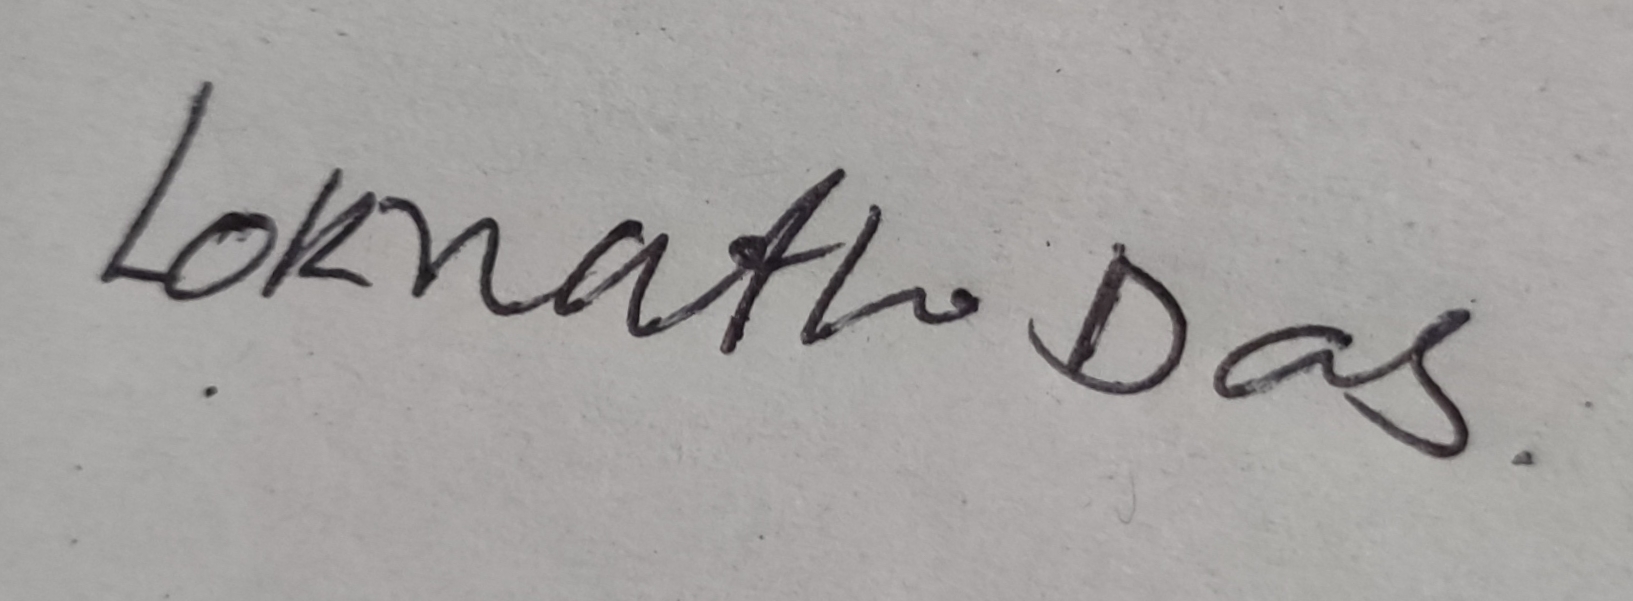 Loknath Das.